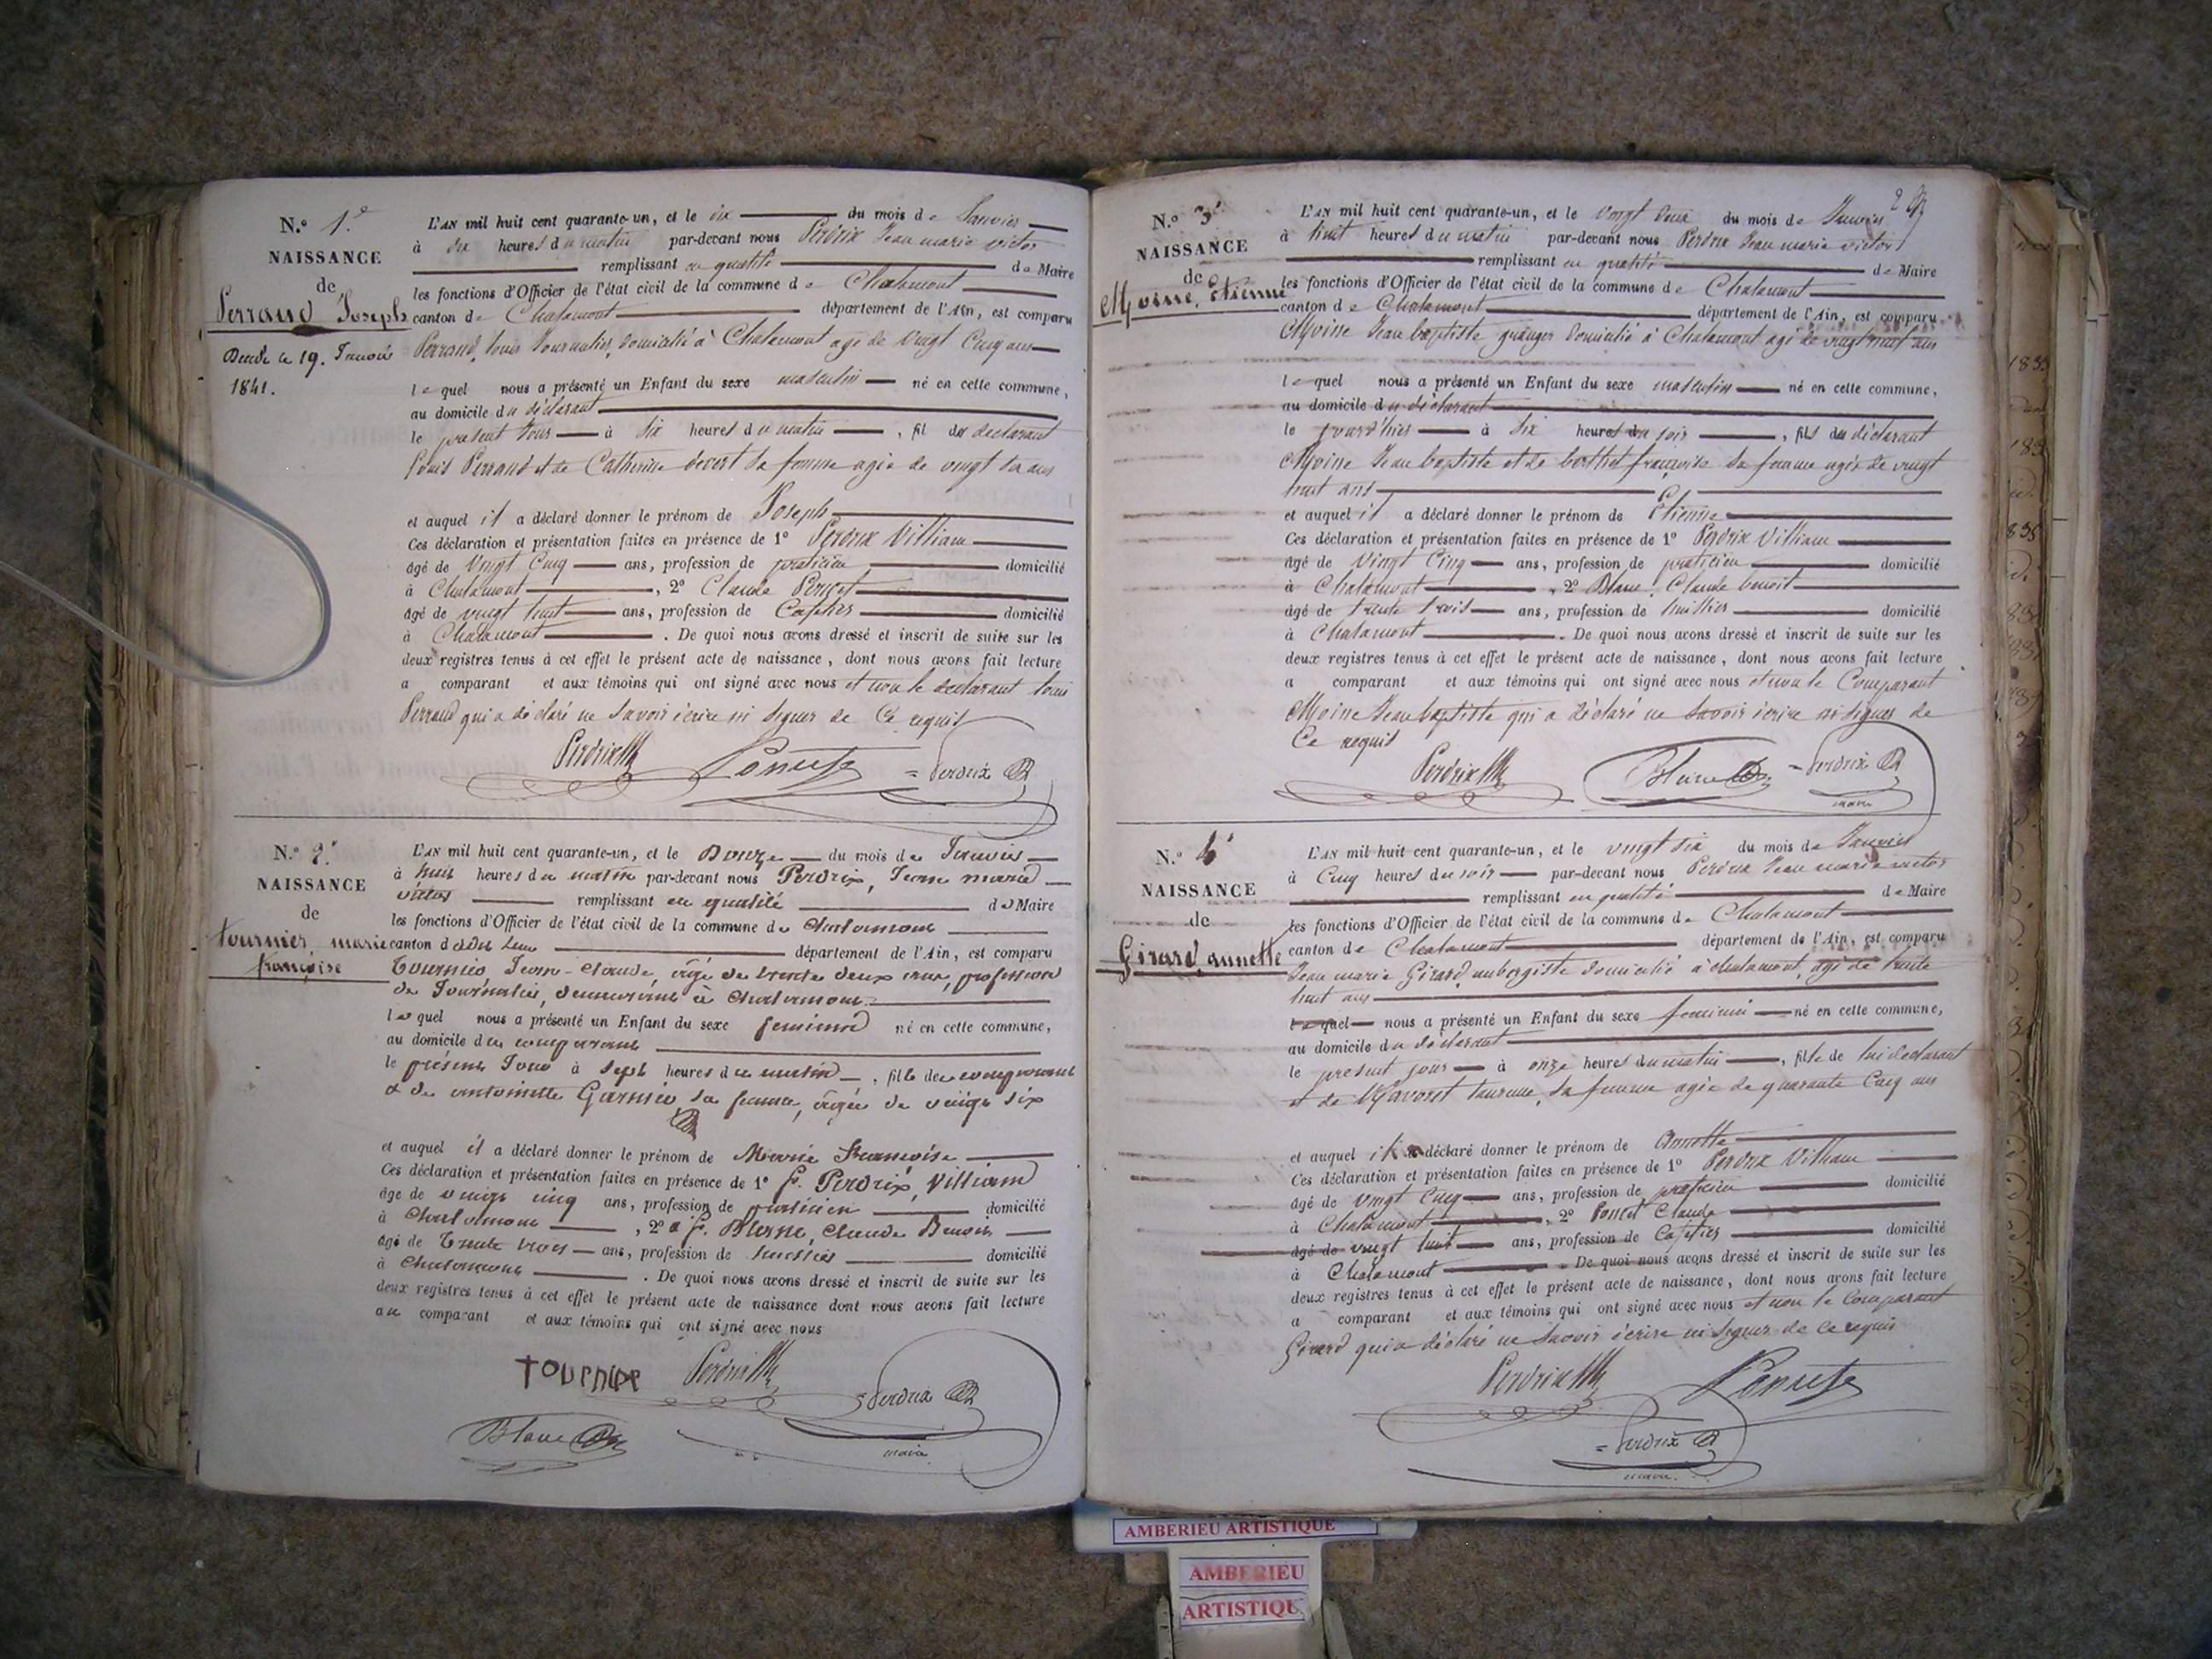 N.º 1.er
NAISSANCE
de
Perraud Joseph
Décédé le 19. Janvier
1841.
L'AN mil huit cent quarante-un, et le dix du mois de Janvier
à dix heures du matin par-devant nous Perdrix Jean marie victor
remplissant en qualité de Maire
les fonctions d'Officier de l'état civil de la commune de Chalamont
canton de Chalamont département de l'Ain, est comparu
Perraud, Louis Journalier, domicilié à Chalamont agé de vingt Cinq ans
lequel nous a présenté un Enfant du sexe masculin né en cette commune,
au domicile du déclarant
le présent Jour à six heures du matin, fil du déclarant
Louis Perraud et de Catherine sa femme agée de vingt six ans
et auquel il a déclaré donner le prénom de Joseph
Ces déclaration et présentation faites en présence de 1º Perdrix Villiam
âgé de Vingt Cinq ans, profession de praticien domicilié
à Chalamont, 2º Claude
âgé de vingt huit ans, profession de Cafetier domicilié
à Chalamont. De quoi nous avons dressé et inscrit de suite sur les
deux registres tenus à cet effet le présent acte de naissance, dont nous avons fait lecture
a comparant et aux témoins qui ont signé avec nous et non le déclarant Louis
Perraud qui a déclaré ne Savoir écrire ni Signer de Ce requis
Perdrix
= Perdrix
N.º 2.
NAISSANCE
de
tournier marie
françoise
L'AN mil huit cent quarante-un, et le Douze du mois de Janvier
à huit heures du matin par-devant nous Perdrix, Jean marie
victor remplissant en qualité de Maire
les fonctions d'Officier de l'état civil de la commune de Chalamont
canton dudit Lieu département de l'Ain, est comparu
Tournier, Jean-Claude, âgé de trente deux ans, profession
de Journalier, demeurant à Chalamont
lequel nous a présenté un Enfant du sexe feminin né en cette commune,
au domicile du comparant
le présent Jour à sept heures du matin, fille du comparant
& de antoinette Garnier, sa femme, âgée de vingt six
et auquel il a déclaré donner le prénom de Marie Françoise
Ces déclaration et présentation faites en présence de 1º Perdrix, Villiam
âgé de vingt cinq ans, profession de praticien domicilié
à Chalamont, 2º Blanc, Claude Benoit
âgé de Trente trois ans, profession de huissier domicilié
à Chalamont. De quoi nous avons dressé et inscrit de suite sur les
deux registres tenus à cet effet le présent acte de naissance dont nous avons fait lecture
au comparant et aux témoins qui ont signé avec nous
TOURNIER Perdrix
= Perdrix
Blanc
maire
N.º 3.
NAISSANCE
de
Moine, Etienne
L'AN mil huit cent quarante-un, et le Vingt deux du mois de Janvier
à huit heures du matin par-devant nous Perdrix Jean marie victor
remplissant en qualité de Maire
les fonctions d'Officier de l'état civil de la commune de Chalamont
canton de Chalamont département de l'Ain, est comparu
Moine Jean baptiste granger domicilié à Chalamont agé de vingt huit ans
lequel nous a présenté un Enfant du sexe masculin né en cette commune,
au domicile du déclarant
le jour d'hier à six heures du soir, fils du déclarant
Moine Jean baptiste et de berthet françoise sa femme agée de vingt
huit ans
et auquel il a déclaré donner le prénom de Etienne
Ces déclaration et présentation faites en présence de 1º Perdrix Villiam
âgé de Vingt Cinq ans, profession de praticien domicilié
à Chalamont, 2º Blanc, Claude benoit
âgé de trente trois ans, profession de huissier domicilié
à Chalamont. De quoi nous avons dressé et inscrit de suite sur les
deux registres tenus à cet effet le présent acte de naissance, dont nous avons fait lecture
a comparant et aux témoins qui ont signé avec nous et non le Comparant
Moine Jean baptiste qui a déclaré ne Savoir écrire ni Signer de
Ce requis
Perdrix Blanc = Perdrix
maire
N.º 4
NAISSANCE
de
Girard, annette
L'AN mil huit cent quarante-un, et le vingt six du mois de Janvier
à Cinq heures du soir par-devant nous Perdrix Jean marie victor
remplissant en qualité de Maire
les fonctions d'Officier de l'état civil de la commune de Chalamont
canton de Chalamont département de l'Ain, est comparu
Jean marie Girard, aubergiste domicilié à chalamont, agé de trente
huit ans
lequel nous a présenté un Enfant du sexe feminin né en cette commune,
au domicile du déclarant
le présent jour à onze heures du matin, fille de lui déclarant
et de sa femme agée de quarante Cinq ans
et auquel il a déclaré donner le prénom de Annette
Ces déclaration et présentation faites en présence de 1º Perdrix Villiam
âgé de vingt Cinq ans, profession de praticien domicilié
à Chalamont, 2º Claude
âgé de vingt huit ans, profession de Cafetier domicilié
à Chalamont. De quoi nous avons dressé et inscrit de suite sur les
deux registres tenus à cet effet le présent acte de naissance, dont nous avons fait lecture
a comparant et aux témoins qui ont signé avec nous et non le Comparant
Girard qui a déclaré ne Savoir écrire ni Signer de ce requis
Perdrix
= Perdrix
maire
AMBERIEU ARTISTIQUE
AMBERIEU
ARTISTIQU